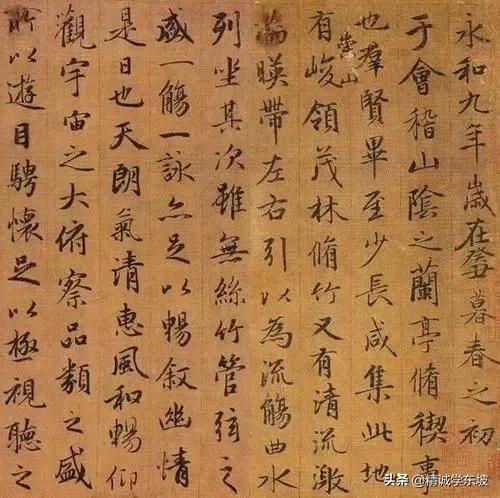 永和九年歲在癸丑暮春之初會
于會稽山陰之蘭亭脩稧事
也羣賢畢至少長咸集此地
有崇山峻領茂林脩竹又有清流激
湍暎帶左右引以為流觴曲水
列坐其次雖無絲竹管弦之
盛一觴一詠亦足以暢敘幽情
是日也天朗氣清惠風和暢仰
觀宇宙之大俯察品類之盛
所以遊目騁懷足以極視聽之
头条 @精诚学东坡